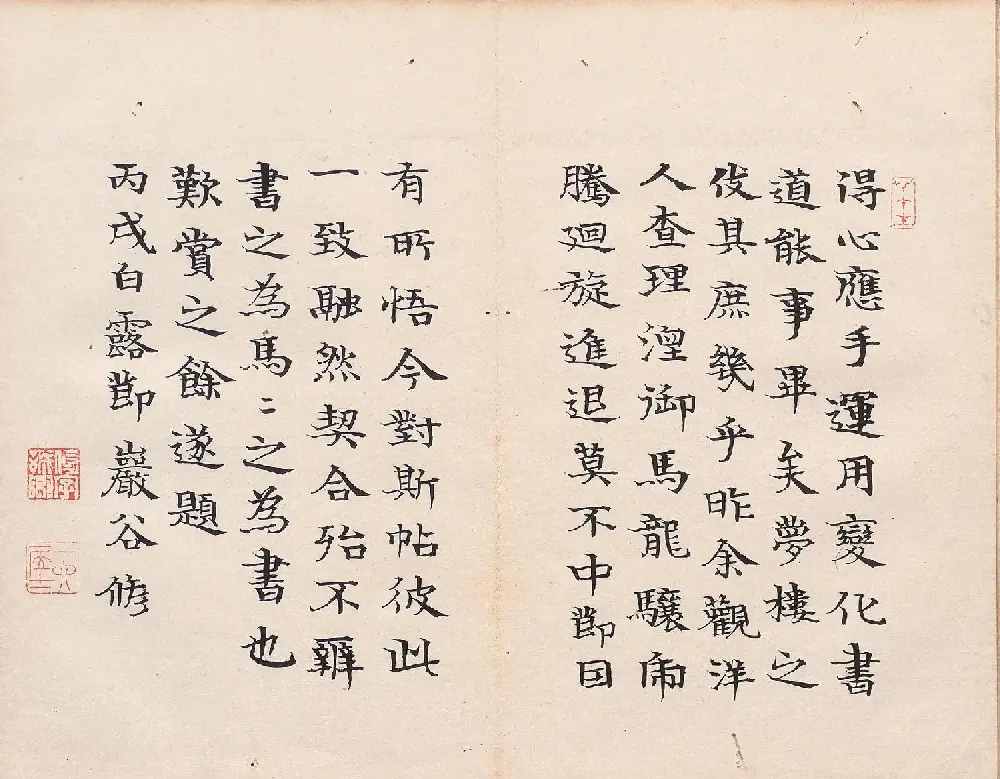 得心應手運用變化書
道能事畢矣夢樓之
伎其庶幾乎昨余觀洋
人查理涅御馬龍驤虎
騰廻旋進退莫不中節因
有所悟今對斯帖彼此
一致融然契合殆不辨
書之為馬〻之為書也
歎賞之餘遂題
丙戌白露節巖谷修